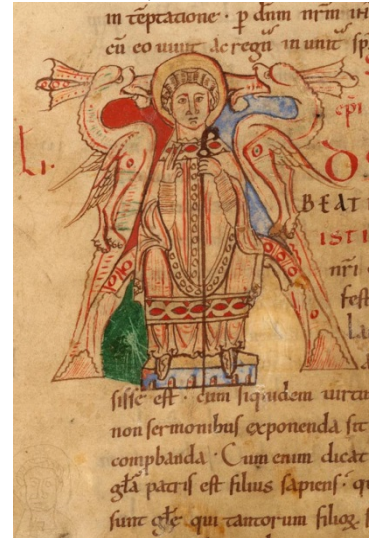 in tēptatione · p dnm nrm iħ
cū eo uiuit ac regn̄ in unit sp̄
ep̄i
BEAT
ISTI
nr̄i
fest
sisse est · cum siquidem uirtu
non sermonibus exponenda sit
comp̱banda · Cum enim dicat
gl̄a patris est filius sapiens · q
sunt gl̄e qui tantorum filioꝝ s